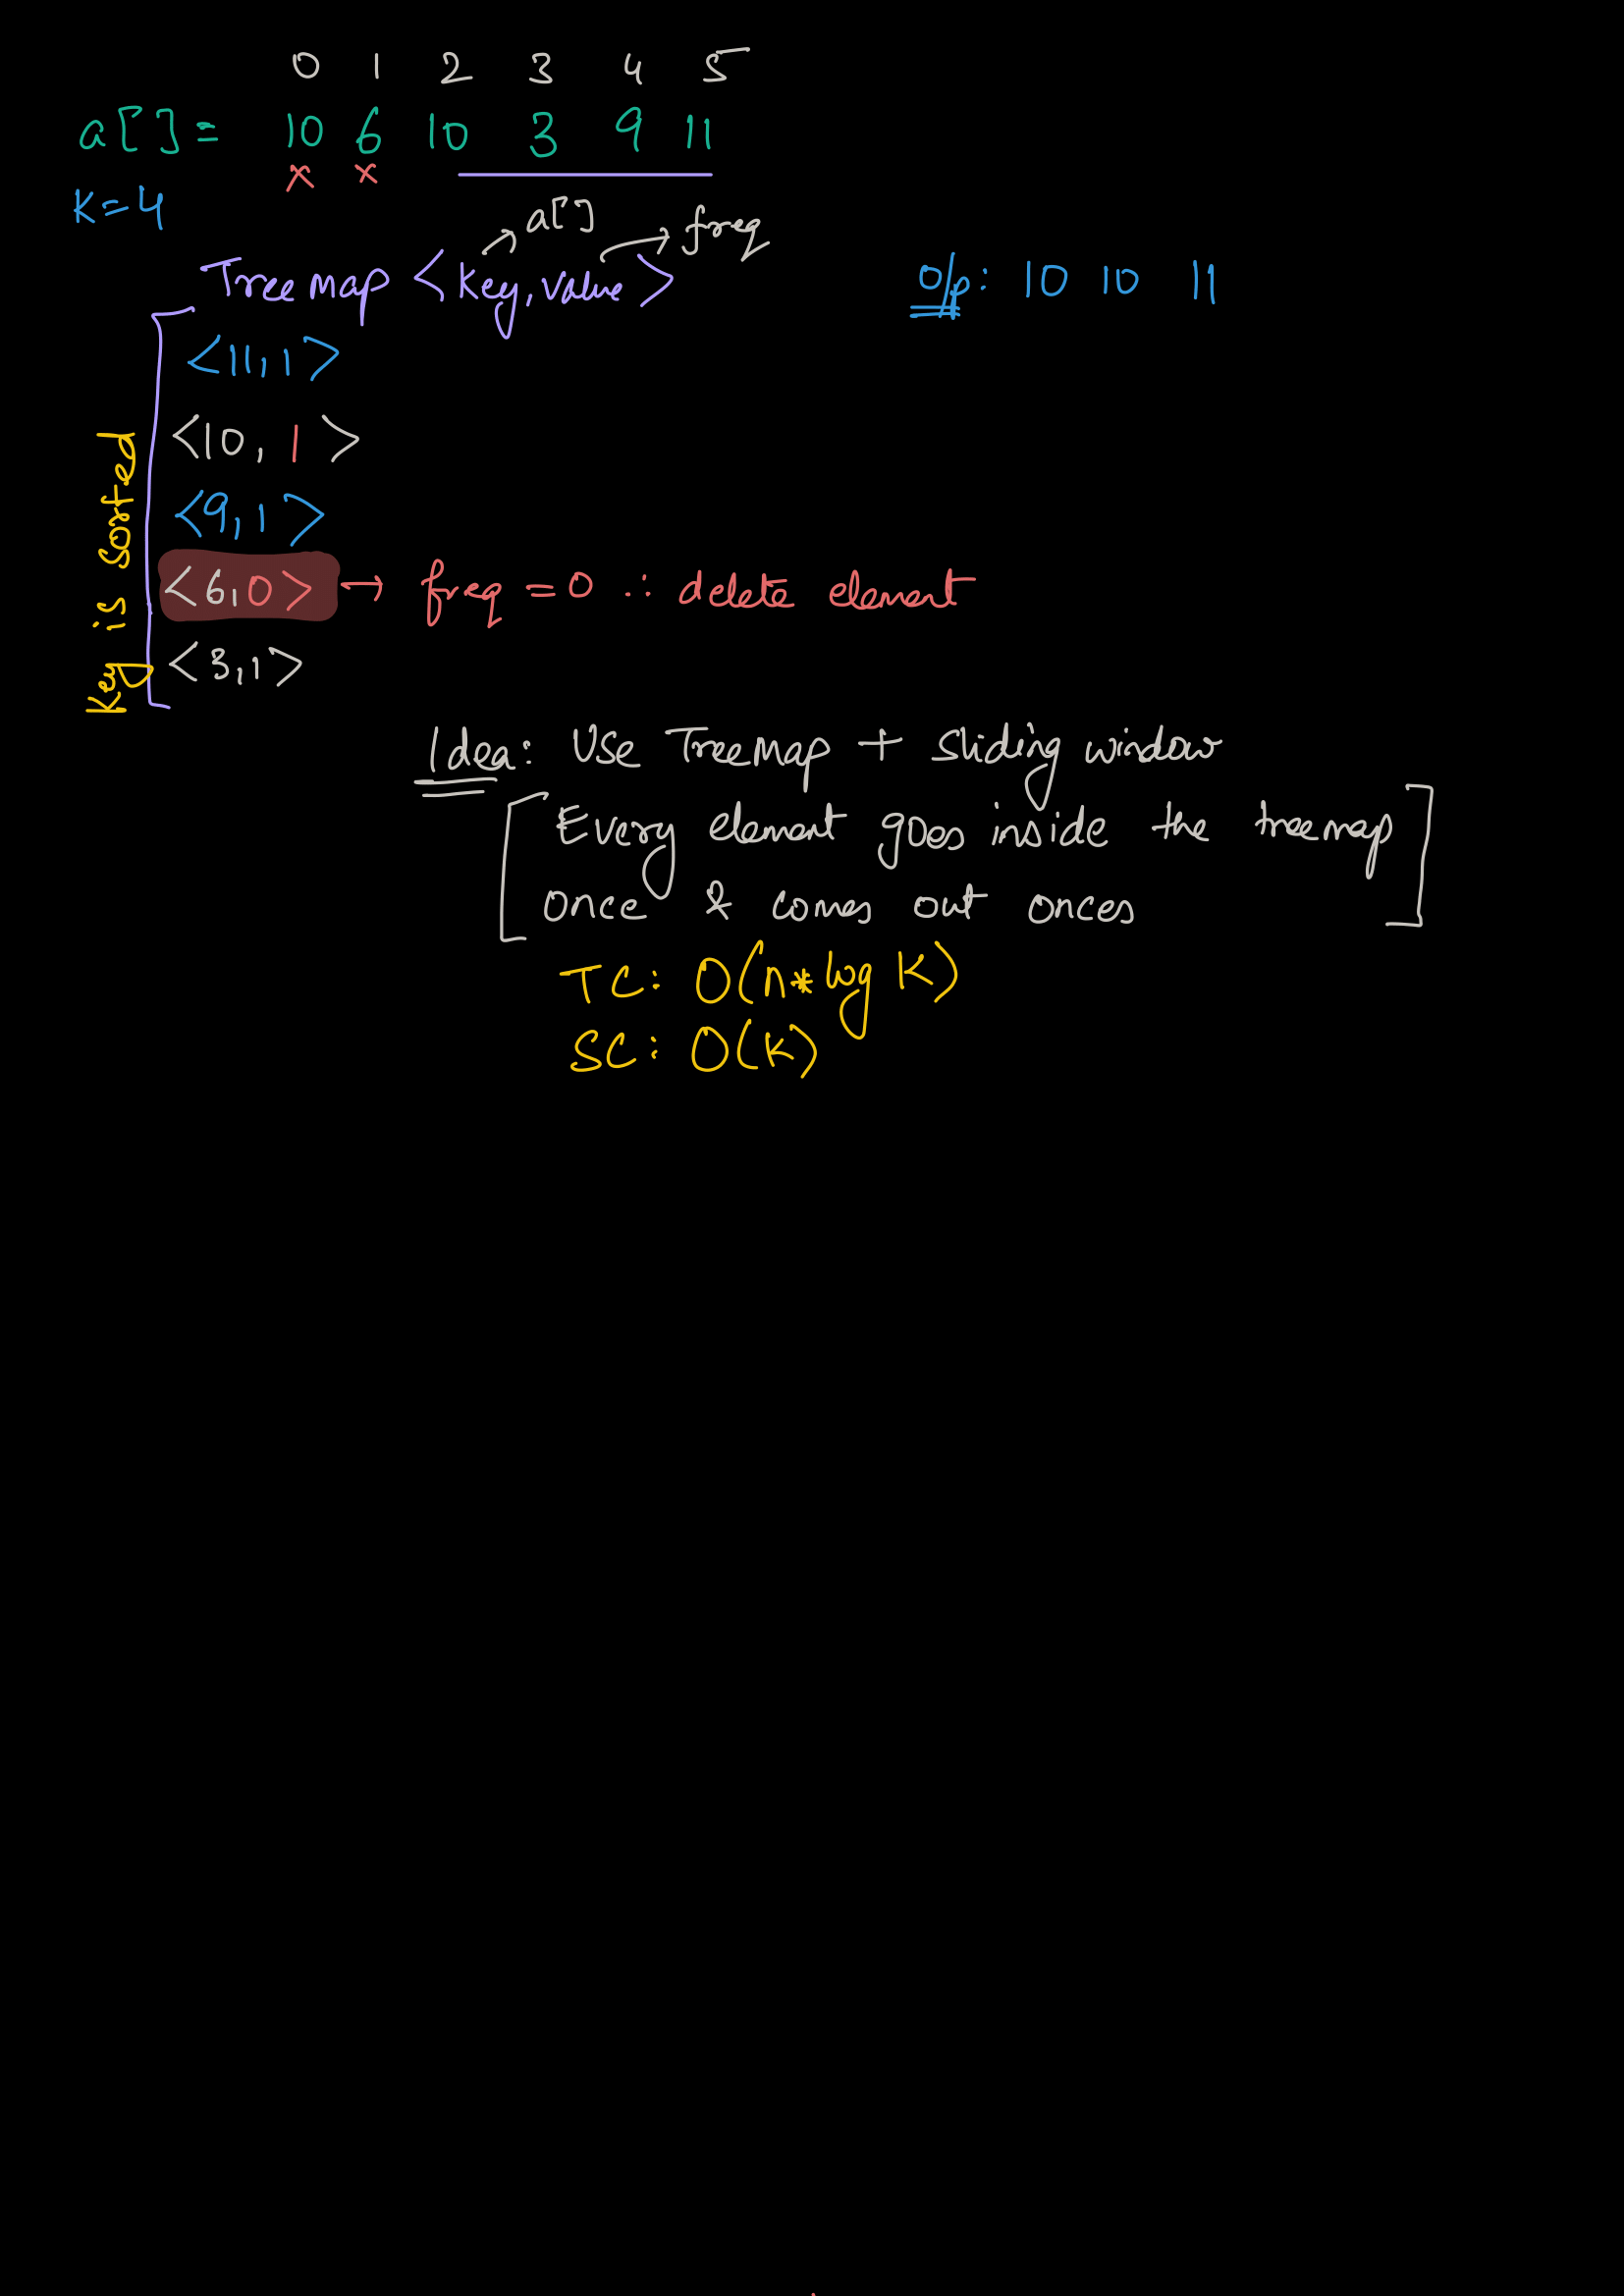 0 1 2 3 4 5
a[] = 10 6 10 3 9 11
x x
K=4
a[] freq
TreeMap <key, value>
o/p: 10 10 11
<11,1>
<10, 1>
<9,1>
<6,0> → freq = 0 ∴ delete element
<3,1>
Key is sorted
Idea: Use TreeMap + sliding window
[Every element goes inside the treemap
once & comes out onces]
TC: O(n*log K)
SC: O(K)